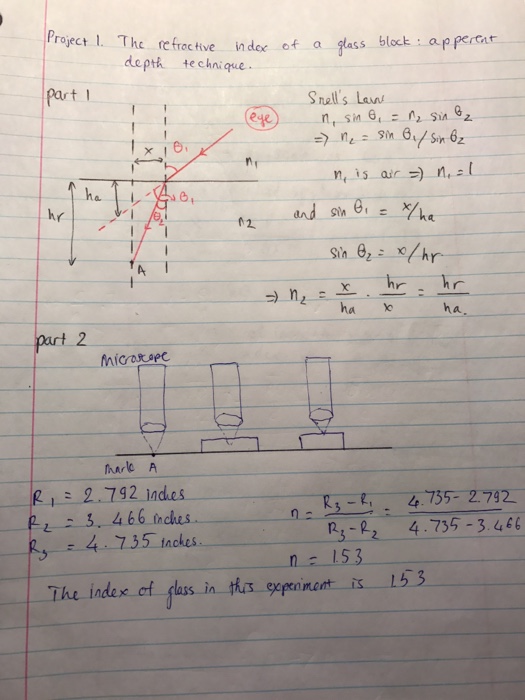 Project 1. The refractive index of a glass block : apperent
depth technique.
part 1
Snell's Law
eye
n₁ sin θ₁ = n₂ sin θ₂
⇒ n₂ = sin θ₁/sin θ₂
x
θ₁
n₁
n₁ is air ⇒ n₁ = 1
ha
hr
θ₁
θ₂
n2
and sin θ₁ = x/ha
sin θ₂ = x/hr
A
⇒ n₂ = x/ha . hr/x = hr/ha.
part 2
Microscope
mark A
R₁ = 2.792 inches
R₂ = 3.466 inches.
R₃ = 4.735 inches.
n = (R₃-R₁)/(R₃-R₂) = (4.735-2.792)/(4.735-3.466)
n = 1.53
The index of glass in this experiment is 1.53